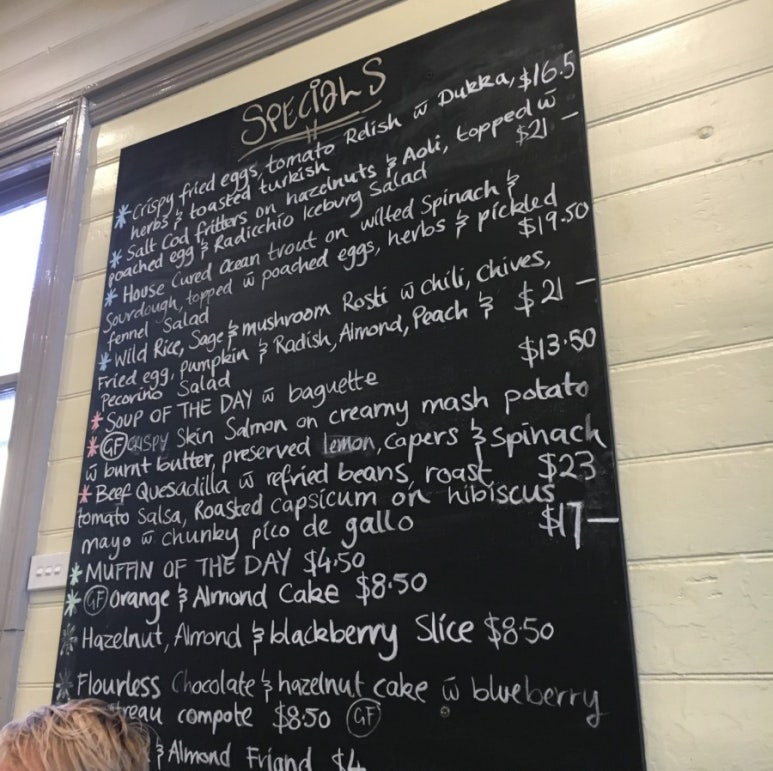 SPECIALS
* Crispy fried eggs, tomato Relish w̄ Dukka, $16.5
herbs & toasted turkish
* Salt Cod fritters on hazelnuts & Aoli, topped w̄
poached egg & Radicchio Iceburg Salad $21 –
* House Cured Ocean trout on wilted Spinach &
Sourdough, topped w̄ poached eggs, herbs & pickled
fennel Salad $19.50
* Wild Rice, Sage & mushroom Rosti w̄ chili, chives,
Fried egg, pumpkin & Radish, Almond, Peach &
Pecorino Salad $21 –
* SOUP OF THE DAY w̄ baguette $13.50
* GF CRISPY Skin Salmon on creamy mash potato
w̄ burnt butter, preserved lemon, capers & spinach
* Beef Quesadilla w̄ refried beans, roast $23
tomato Salsa, Roasted capsicum on hibiscus
mayo w̄ chunky pico de gallo $17 –
* MUFFIN OF THE DAY $4.50
* GF Orange & Almond Cake $8.50
* Hazelnut, Almond & blackberry Slice $8.50
* Flourless Chocolate & hazelnut cake w̄ blueberry
treau compote $8.50 GF
& Almond Friand $4